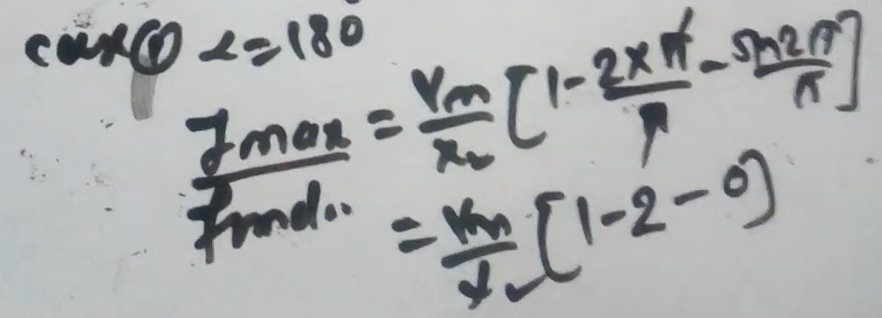 case① α=180°
Imax/Fund.. = Vm/XL [1 - 2×π/π - sin2π/π]
= Vm/XL [1-2-0]